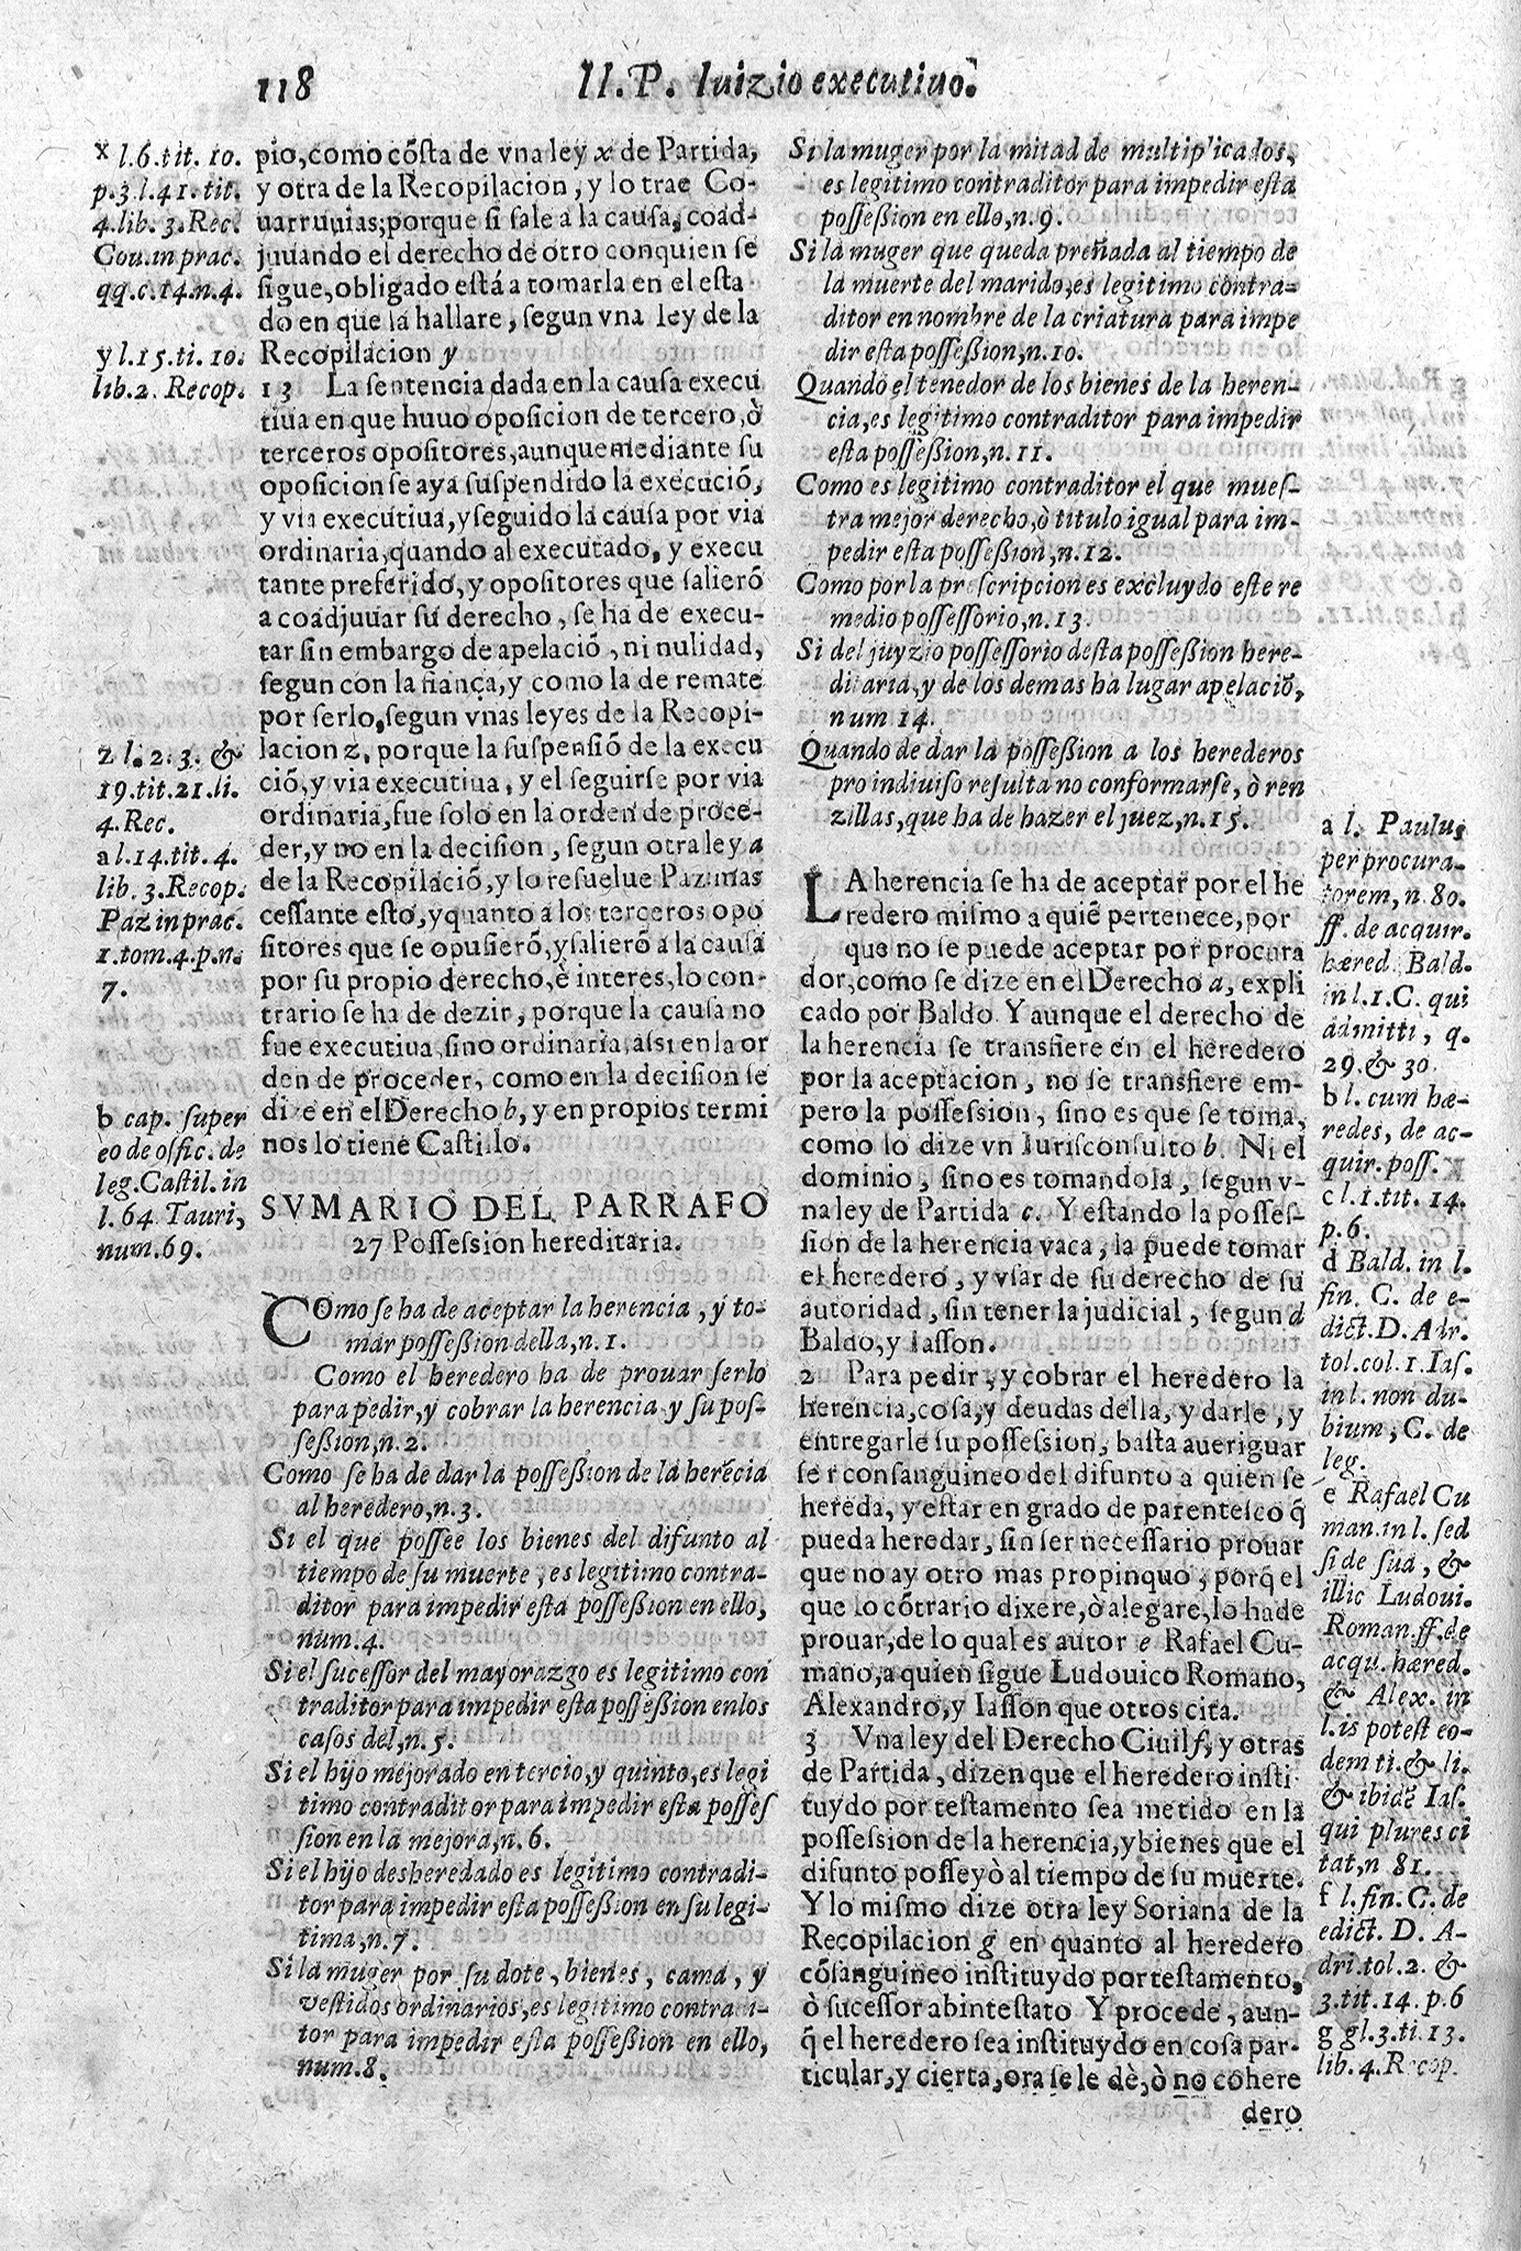 118
II. P. Iuizio executiuo.
x l.6.tit. 10.
p.3.l.41. tit.
4.lib. 3. Rec.
Cou.in prac.
qq.c.14.n.4.
y l.15.ti. 10.
lib.2. Recop.
z l. 2. 3. &
19.tit.21.li.
4. Rec.
a l.14.tit. 4.
lib. 3. Recop.
Paz in prac.
1.tom.4.p.n.
7.
b cap. super
eo de offic. de
leg. Castil. in
l. 64. Tauri,
num.69.
pio, como cõsta de vna ley x de Partida,
y otra de la Recopilacion, y lo trae Co-
uarruuias; porque si sale a la causa, coad-
juuando el derecho de otro conquien se
sigue, obligado està a tomarla en el esta
do en que la hallare, segun vna ley de la
Recopilacion y
13 La sentencia dada en la causa execu
tiua en que huuo oposicion de tercero, ò
terceros opositores, aunque mediante su
oposicion se aya suspendido la execuciõ,
y via executiua, y seguido la causa por via
ordinaria, quando al executado, y execu
tante preferido, y opositores que salierõ
a coadjuuar su derecho, se ha de execu-
tar sin embargo de apelaciõ, ni nulidad,
segun con la fiança, y como la de remate
por serlo, segun vnas leyes de la Recopi-
lacion z, porque la suspensiõ de la execu
ciõ, y via executiua, y el seguirse por via
ordinaria, fue solo en la orden de proce-
der, y no en la decision, segun otra ley a
de la Recopilaciõ, y lo resuelue Paz: mas
cessante esto, y quanto a los terceros opo
sitores que se opusierõ, y salierõ a la causa
por su propio derecho, è interes, lo con-
trario se ha de dezir, porque la causa no
fue executiua, sino ordinaria, assi en la or
den de proceder, como en la decision se
dize en el Derecho b, y en propios termi
nos lo tiene Castillo.
SVMARIO DEL PARRAFO
27 Possession hereditaria.
COmo se ha de aceptar la herencia, y to-
mar possession della, n. 1.
Como el heredero ha de prouar serlo
para pedir, y cobrar la herencia y su pos-
session, n. 2.
Como se ha de dar la possession de la herẽcia
al heredero, n. 3.
Si el que possee los bienes del difunto al
tiempo de su muerte, es legitimo contra-
ditor para impedir esta possession en ello,
num. 4.
Si el sucessor del mayorazgo es legitimo con
traditor para impedir esta possession en los
casos del, n. 5.
Si el hijo mejorado en tercio, y quinto, es legi
timo contraditor para impedir esta posses
sion en la mejora, n. 6.
Si el hijo desheredado es legitimo contradi-
tor para impedir esta possession en su legi-
tima, n. 7.
Si la muger por su dote, bienes, cama, y
vestidos ordinarios, es legitimo contradi-
tor para impedir esta possession en ello,
num. 8.
Si la muger por la mitad de multiplicados,
es legitimo contraditor para impedir esta
possession en ello, n. 9.
Si la muger que queda preñada al tiempo de
la muerte del marido, es legitimo contra-
ditor en nombre de la criatura para impe
dir esta possession, n. 10.
Quando el tenedor de los bienes de la heren-
cia, es legitimo contraditor para impedir
esta possession, n. 11.
Como es legitimo contraditor el que mues-
tra mejor derecho, ò titulo igual para im-
pedir esta possession, n. 12.
Como por la prescripcion es excluydo este re
medio possessorio, n. 13.
Si del juyzio possessorio desta possession here-
ditaria, y de los demas ha lugar apelaciõ,
num 14.
Quando de dar la possession a los herederos
pro indiuiso resulta no conformarse, ò ren
zillas, que ha de hazer el juez, n. 15.
LA herencia se ha de aceptar por el he
redero mismo a quiẽ pertenece, por
que no se puede aceptar por procura
dor, como se dize en el Derecho a, expli
cado por Baldo. Y aunque el derecho de
la herencia se transfiere en el heredero
por la aceptacion, no se transfiere em-
pero la possession, sino es que se toma,
como lo dize vn Iurisconsulto b. Ni el
dominio, sino es tomandola, segun v-
na ley de Partida c. Y estando la posses-
sion de la herencia vaca, la puede tomar
el heredero, y vsar de su derecho de su
autoridad, sin tener la judicial, segun d
Baldo, y Iasson.
2 Para pedir, y cobrar el heredero la
herencia, cosa, y deudas della, y darle, y
entregarle su possession, basta aueriguar
ser consanguineo del difunto a quien se
hereda, y estar en grado de parentesco q̃
pueda heredar, sin ser necessario prouar
que no ay otro mas propinquo, porq̃ el
que lo cõtrario dixere, ò alegare, lo ha de
prouar, de lo qual es autor e Rafael Cu-
mano, a quien sigue Ludouico Romano,
Alexandro, y Iasson que otros cita.
3 Vna ley del Derecho Ciuil f, y otras
de Partida, dizen que el heredero insti
tuydo por testamento sea metido en la
possession de la herencia, y bienes que el
difunto posseyò al tiempo de su muerte.
Y lo mismo dize otra ley Soriana de la
Recopilacion g en quanto al heredero
cõsanguineo instituydo por testamento,
ò sucessor abintestato Y procede, aun-
q̃ el heredero sea instituydo en cosa par-
ticular, y cierta, ora se le dè, ò no cohere
dero
a l. Paulus
per procura-
torem, n. 80.
ff. de acquir.
hæred. Bald.
in l.1.C. qui
admitti, q.
29. & 30.
b l. cum hæ-
redes, de ac-
quir. poss.
c l.1.tit. 14.
p.6.
d Bald. in l.
fin. C. de e-
dict. D. Adr.
tol.col.1.Ias.
in l. non du-
bium, C. de
leg.
e Rafael Cu
man.in l. sed
si de sua, &
illic Ludoui.
Roman.ff.de
acqu. hæred.
& Alex. in
l. is potest eo-
dem ti. & li.
& ibidẽ Ias.
qui plures ci
tat, n 81.
f l. fin. C. de
edict. D. A-
dri.tol.2. &
3.tit.14.p.6
g gl.3.ti.13.
lib. 4. Recop.